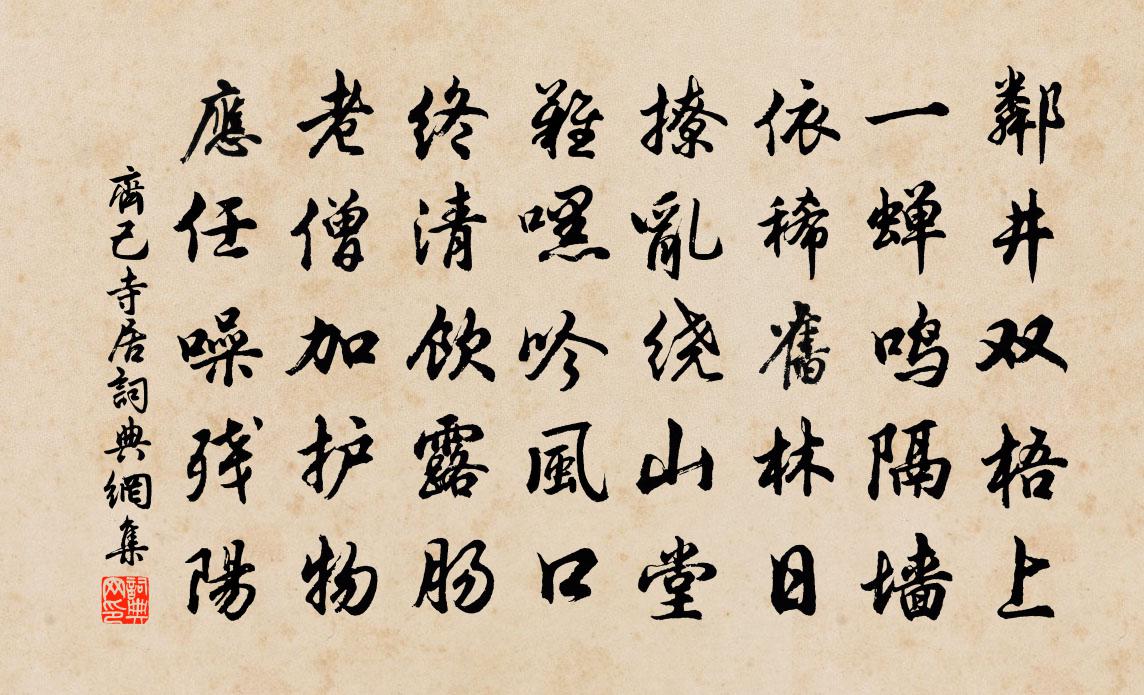 鄰井双梧上
一蝉鸣隔墙
依稀舊林日
撩亂绕山堂
難嘿吟風口
终清飲露肠
老僧加护物
應任噪残陽
齊己寺居詞典網集
詞典网印